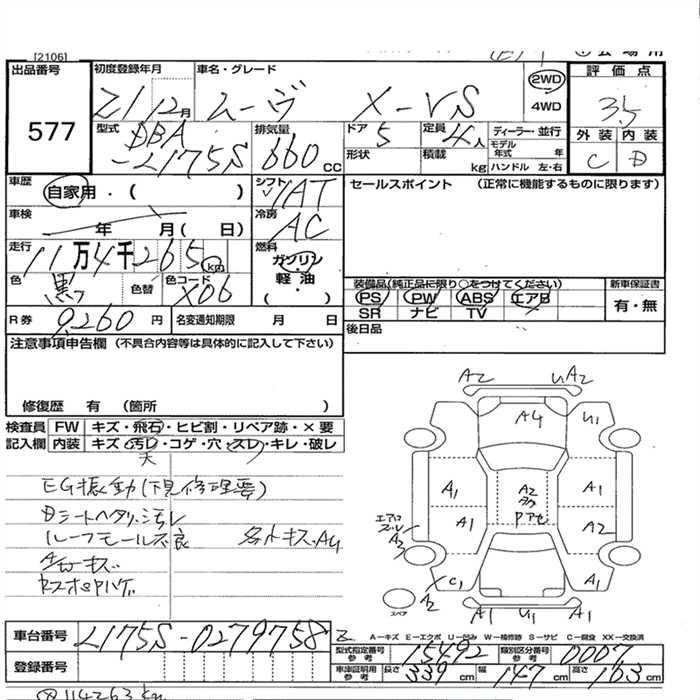 [2106]
出品番号 577
初度登録年月 21 12月
車名・グレード ムーヴ X-VS
2WD 4WD
評価点 3.5
外装 C 内装 D
型式 DBA-L175S
排気量 660 CC
ドア 5
形状
定員 4人
積載 kg
ディーラー・並行
モデル年式 年
ハンドル 左・右
車歴 自家用・( )
シフト IAT
セールスポイント (正常に機能するものに限ります)
車検 年 月( 日)
冷房 AC
走行 11万4千265km
燃料 ガソリン・軽油・
色 黒 色替 色コード X06
装備品(純正品に限り○をつけてください)
新車保証書
PS PW ABS エアB
SR ナビ TV
有・無
R券 9,260円
名変通知期限 月 日
後日品
注意事項申告欄 (不具合内容等は具体的に記入して下さい)
修復歴 有 (箇所 )
検査員記入欄
FW キズ・飛石・ヒビ割・リペア跡・×要
内装 キズ・汚レ・コゲ・穴・スレ・キレ・破レ
大
EG振動(下見修理要)
Dシートヘタリ、汚レ
ルーフモール不良
各外キズ、A4
A2 UA2
A4 U1
A1 A2 A1
A1 A2
エアロ
A3
C1 A1
スペア A2
A1 U1 U1
車台番号 L175S-0279758
A-キズ E-エクボ U-凹み W-補修跡 S-サビ C-腐食 XX-交換済
登録番号
型式指定番号 参考 15492
類別区分番号 参考 0007
車庫証明用 参考 長さ 339cm 幅 147cm 高さ 163cm
114263km